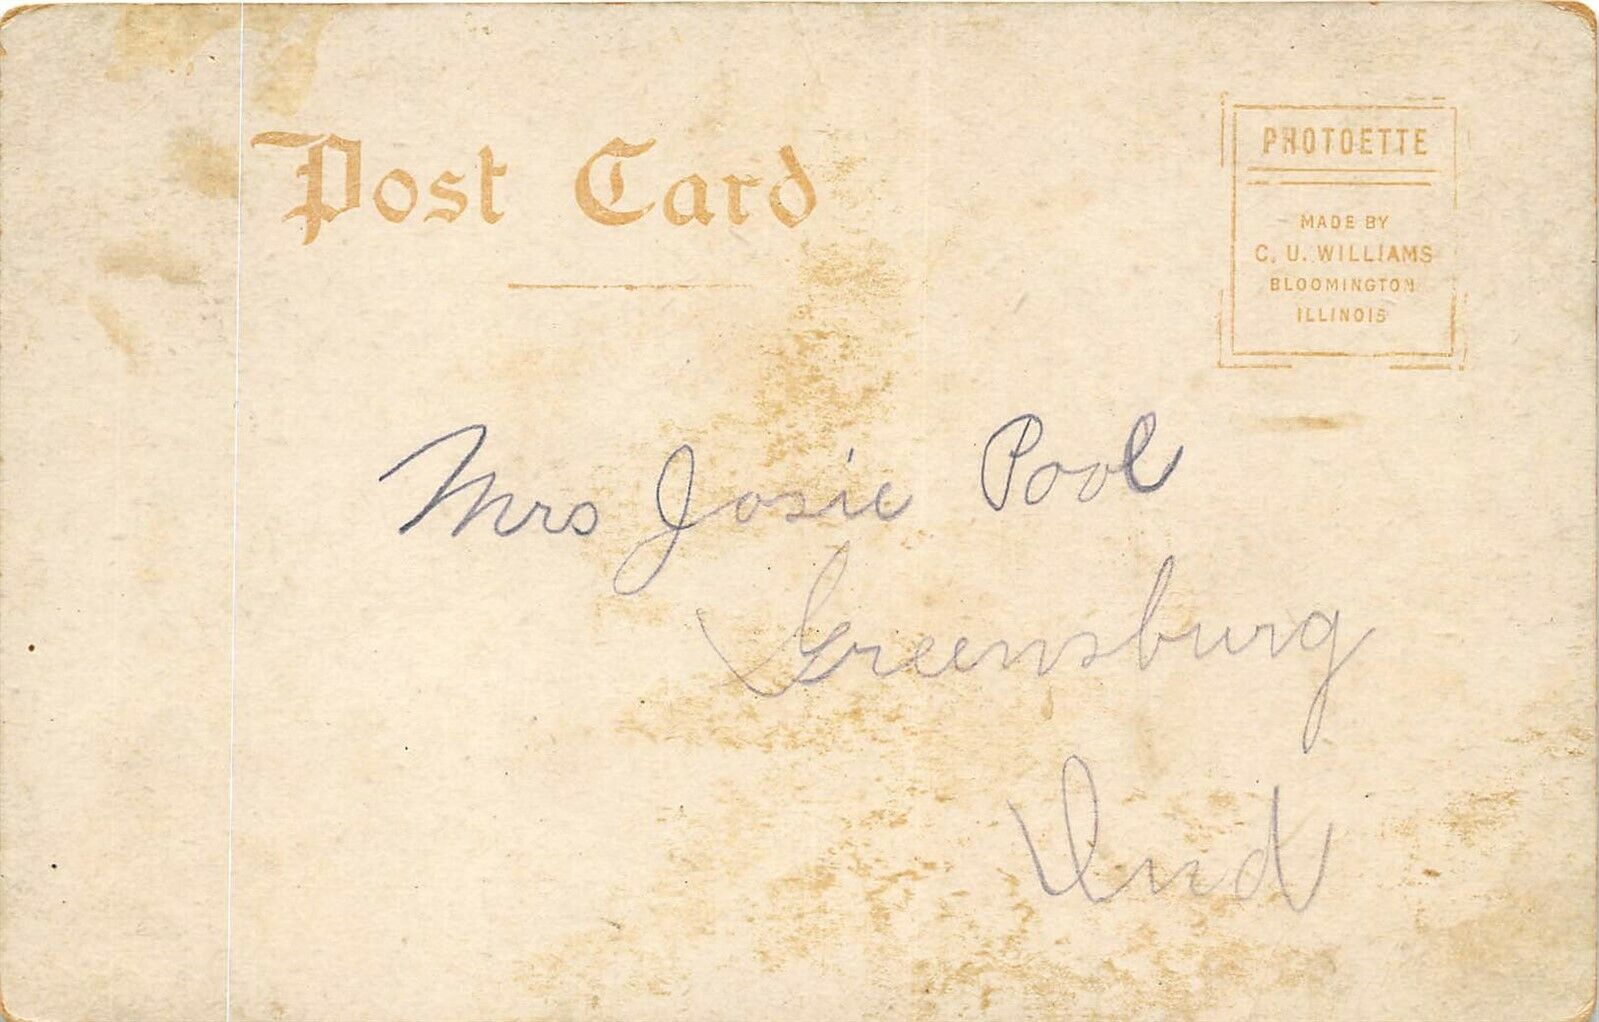 Post Card
PHOTOETTE
MADE BY
C. U. WILLIAMS
BLOOMINGTON
ILLINOIS
Mrs Josie Pool
Greensburg
Ind